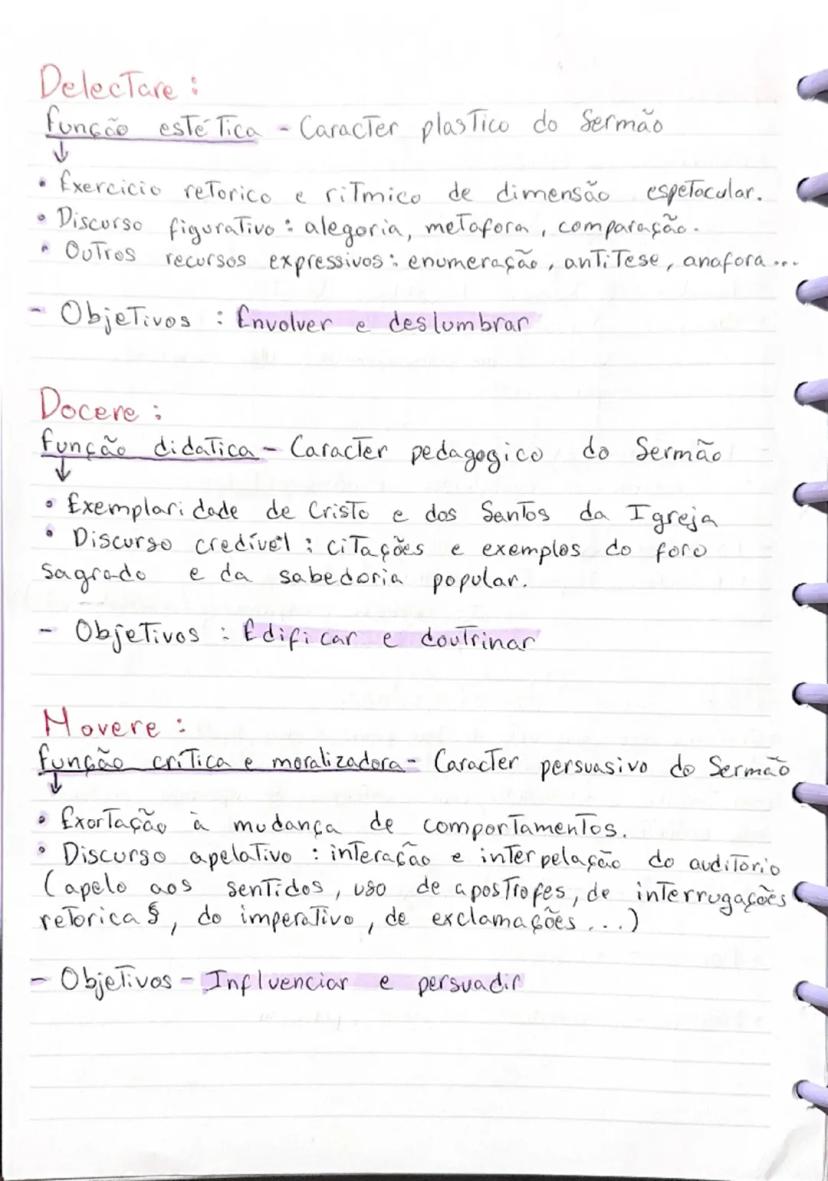 Delectare :
função estética - Caracter plastico do Sermão
↓
• Exercicio retorico e ritmico de dimensão espetacular.
• Discurso figurativo : alegoria, metafora, comparação.
• Outros recursos expressivos : enumeração, antitese, anafora ...
- Objetivos : Envolver e deslumbrar
Docere :
função didatica - Caracter pedagogico do Sermão
↓
• Exemplaridade de Cristo e dos Santos da Igreja
• Discurso credível : citações e exemplos do foro
sagrado e da sabedoria popular.
- Objetivos : Edificar e doutrinar
Movere :
função crítica e moralizadora - Caracter persuasivo do Sermão
↓
• Exortação à mudança de comportamentos.
• Discurso apelativo : interação e interpelação do auditorio
(apelo aos sentidos, uso de apostrofes, de interrugações
retoricas, do imperativo, de exclamações ...)
- Objetivos - Influenciar e persuadir